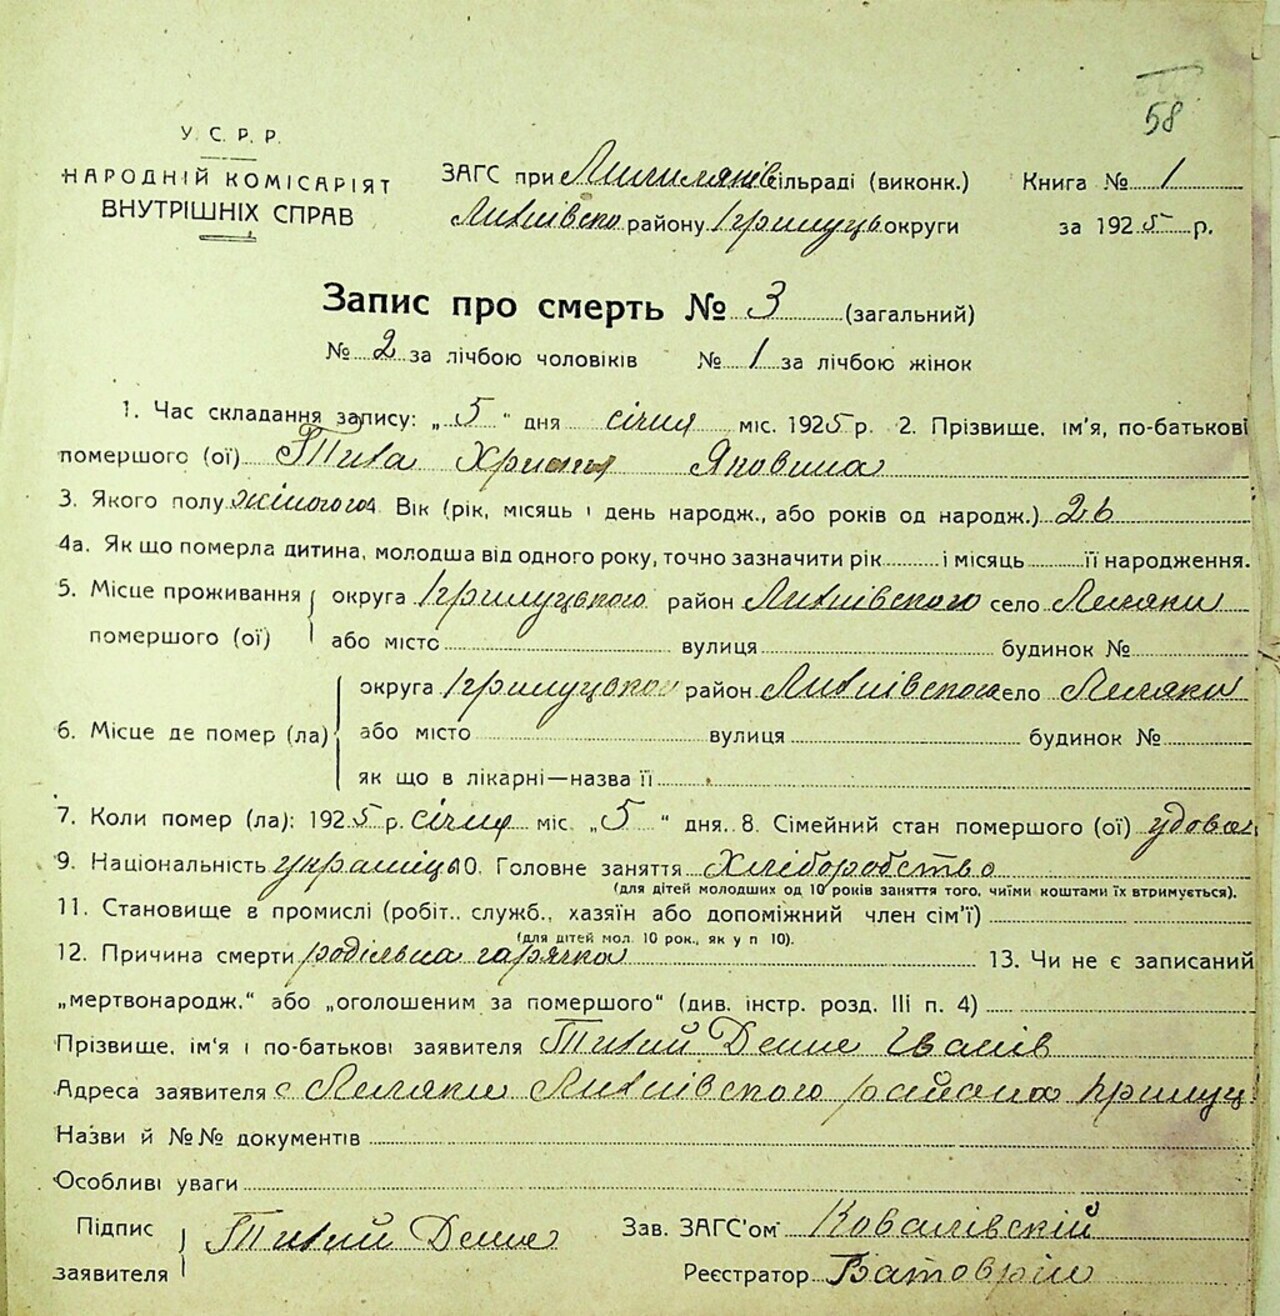 58
У. С. Р. Р.
НАРОДНІЙ КОМІСАРІЯТ
ВНУТРІШНІХ СПРАВ
ЗАГС при сільраді (виконк.)
району Прилуць округи
Книга № 1
за 1925 р.
Запис про смерть № 3 (загальний)
№ 2 за лічбою чоловіків № 1 за лічбою жінок
1. Час складання запису: „5" дня січня міс. 1925 р. 2. Прізвище, ім'я, по-батькові
помершого (ої) Тиха Яковина
3. Якого полу жіногого 4. Вік (рік, місяць і день народж., або років од народж.) 26
4а. Як що померла дитина, молодша від одного року, точно зазначити рік і місяць її народження.
5. Місце проживання помершого (ої) округа Прилуцького район село Леляки
або місто вулиця будинок №
6. Місце де помер (ла) округа Прилуцької район село Леляки
або місто вулиця будинок №
як що в лікарні—назва її
7. Коли помер (ла): 1925 р. січня міс. „5" дня. 8. Сімейний стан помершого (ої) удова
9. Національність україніць 10. Головне заняття Хліборобство
(для дітей молодших од 10 років заняття того, чиїми коштами їх втримується).
11. Становище в промислі (робіт., служб., хазяїн або допоміжний член сім'ї)
(для дітей мол. 10 рок., як у п 10).
12. Причина смерти родільна гарячка 13. Чи не є записаний
„мертвонародж." або „оголошеним за помершого" (див. інстр. розд. III п. 4)
Прізвище, ім'я і по-батькові заявителя Тихий Іванів
Адреса заявителя с Леляки района Прилуц
Назви й №№ документів
Особливі уваги
Підпис заявителя Тихий
Зав. ЗАГС'ом Ковалівскій
Реєстратор